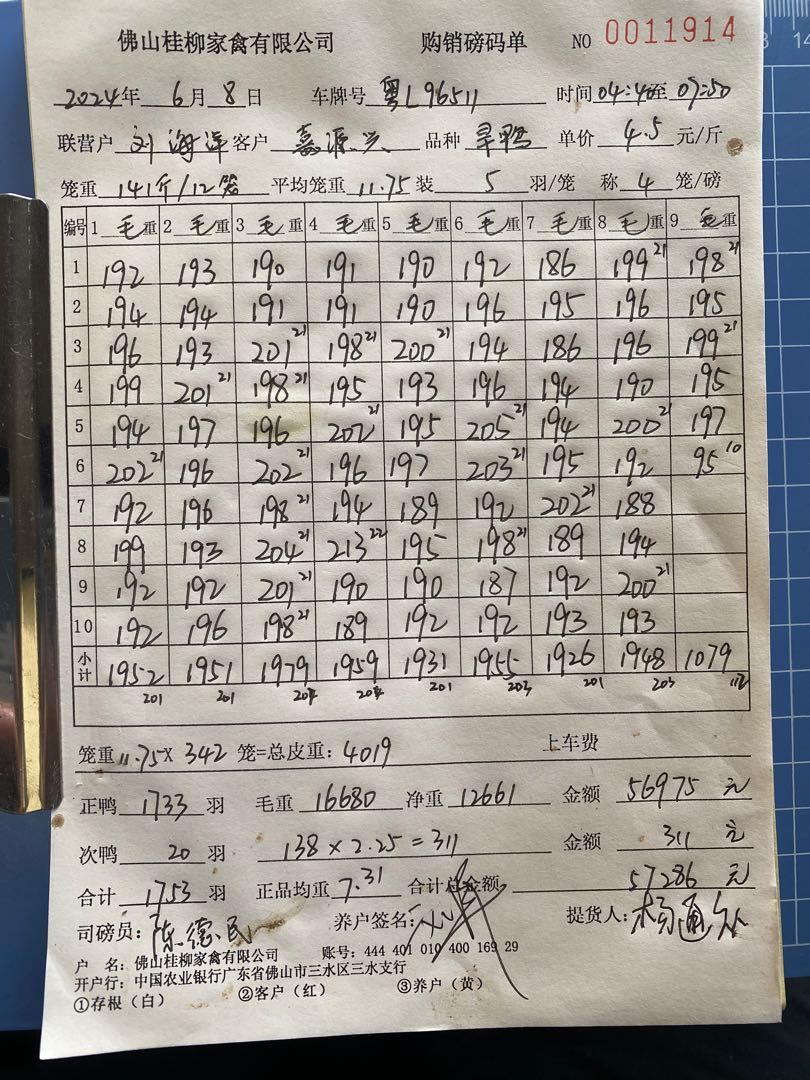 佛山桂柳家禽有限公司 购销磅码单 NO 0011914
2024年 6月 8日 车牌号 粤L96511 时间 04:40至 07:50
联营户 刘海洋 客户 嘉源兴 品种 旱鸭 单价 4.5 元/斤
笼重 141斤/12笼 平均笼重 11.75 装 5 羽/笼 称 4 笼/磅
编号 1 毛重 2 毛重 3 毛重 4 毛重 5 毛重 6 毛重 7 毛重 8 毛重 9 毛重
1 192 193 190 191 190 192 186 199 21 198 21
2 194 194 191 191 190 196 195 196 195
3 196 193 201 21 198 21 200 21 194 186 196 199 21
4 199 201 21 198 21 195 193 196 194 190 195
5 194 197 196 202 21 195 205 21 194 200 21 197
6 202 21 196 202 21 196 197 203 21 195 192 95 10
7 192 196 198 21 194 189 192 202 21 188
8 199 193 204 21 213 22 195 198 21 189 194
9 192 192 201 21 190 190 187 192 200 21
10 192 196 198 21 189 192 192 193 193
小计 1952 1951 1979 1959 1931 1955 1926 1948 1079
201 201 204 201 203 201 203 112
笼重 11.75 X 342 笼=总皮重: 4019 上车费
正鸭 1733 羽 毛重 16680 净重 12661 金额 56975 元
次鸭 20 羽 138 × 2.25 = 311 金额 311 元
合计 1753 羽 正品均重 7.31 合计总金额 57286 元
司磅员: 陈德民 养户签名: 提货人: 杨通
户 名: 佛山桂柳家禽有限公司 账号: 444 401 010 400 169 29
开户行: 中国农业银行广东省佛山市三水区三水支行
①存根（白） ②客户（红） ③养户（黄）